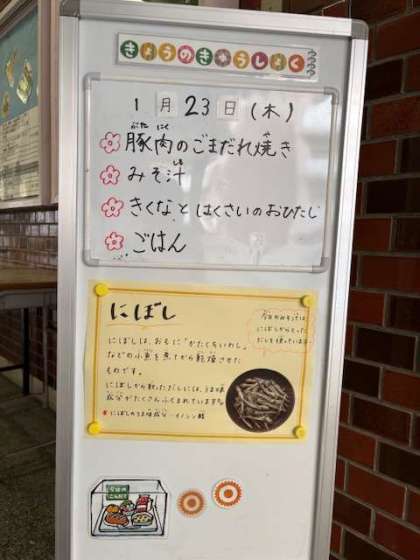 きょうのきゅうしょく
1月23日(木)
ぶた にく
豚肉のごまだれ焼き
みそ汁
きくなとはくさいのおひたし
ごはん
にぼし
今日のみそ汁は
にぼしからとった
だしを使っています
にぼしは、おもに"かたくちいわし"
などの小魚を煮てから乾燥させた
ものです。
にぼしから取っただしには、うま味
成分がたくさんふくまれています
にぼしのうま味成分…イノシン酸